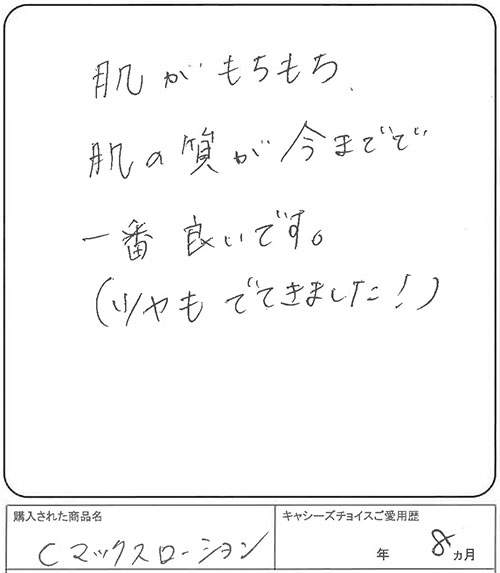 肌がもちもち、
肌の質が今までで
一番良いです。
(ツヤもでてきました!)
購入された商品名
Cマックスローション
キャシーズチョイスご愛用歴
年 8ヵ月